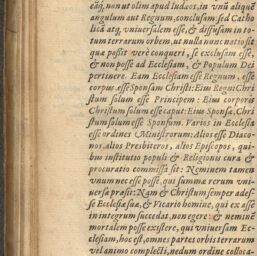 eāq, non ut olim apud Iudaos, in vnū aliquē
angulum aut Regnum, conclusam: sed Catho
licā atq, vniuersalem esse, & diffusam in to-
tum terrarum orbem, ut nulla nunc natio sit
qua possit verè conqueri, se exclusam esse,
& non posse ad Ecclesiam, & Populum Dei
pertinere. Eam Ecclesiam esse Regnum, esse
corpus, esse Sponsam Christi: Eius Regni Chri
stum solum esse Principem: Eius corporis
Christum solum esse caput: Eius Sponsa, Chri
stum solum esse Sponsum. Varios in Ecclesia
esse ordines Ministrorum: Alios esse Diaco-
nos, alios Presbiteros, alios Episcopos, qui-
bus institutio populi & Religionis cura &
procuratio commissa sit: Neminem tamen
vnum nec esse posse, qui summa rerum vni-
uersa prasit: Nam & Christum semper ades-
se Ecclesia sua, & Vicario homine, qui ex asse
in integrum succedat, non egere: & neminē
mortalem posse existere, qui vniuersam Ec-
clesiam, hoc est, omnes partes orbis terrarum
vel animo complecti, nedum ordine colloca-